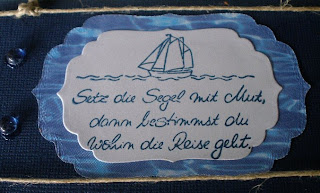 Setz die Segel mit Mut,
dann bestimmst du
Wohin die Reise geht.